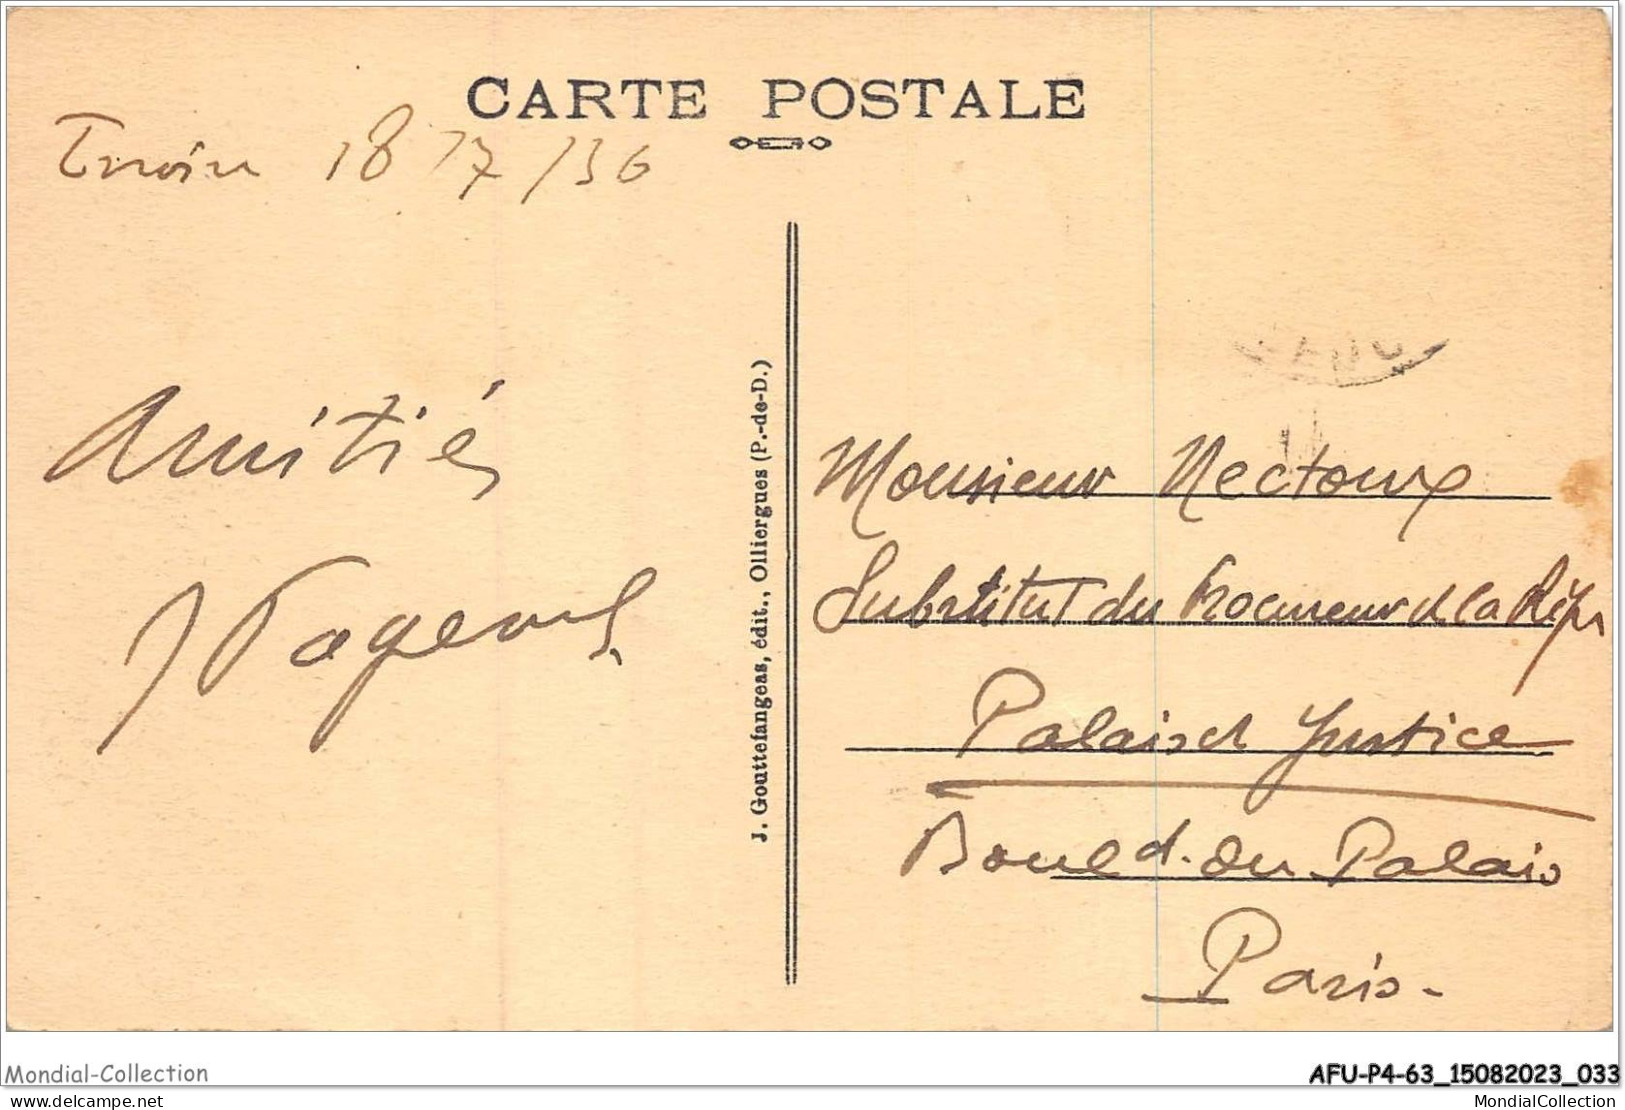 CARTE POSTALE
18/7/36
Amitiés
J. Gouttefangeas, édit., Olliergues (P.-de-D.)
Monsieur Nectoux
Substitut du Procureur de la Répu
Palais de Justice
Boul d. du Palais
Paris.
Mondial-Collection
AFU-P4-63_15082023_033
delcampe.net
MondialCollection